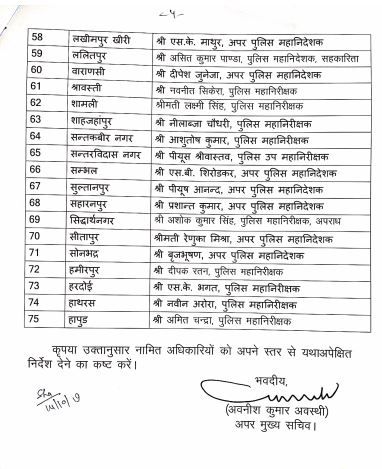 -4-
58 लखीमपुर खीरी श्री एस.के. माथुर, अपर पुलिस महानिदेशक
59 ललितपुर श्री असित कुमार पाण्डा, पुलिस महानिदेशक, सहकारिता
60 वाराणसी श्री दीपेश जुनेजा, अपर पुलिस महानिदेशक
61 श्रावस्ती श्री नवनीत सिकेरा, पुलिस महानिरीक्षक
62 शामली श्रीमती लक्ष्मी सिंह, पुलिस महानिरीक्षक
63 शाहजहांपुर श्री नीलाब्जा चौधरी, पुलिस महानिरीक्षक
64 सन्तकबीर नगर श्री आशुतोष कुमार, पुलिस महानिरीक्षक
65 सन्तरविदास नगर श्री पीयूस श्रीवास्तव, पुलिस उप महानिरीक्षक
66 सम्भल श्री एस.बी. शिरोडकर, अपर पुलिस महानिदेशक
67 सुल्तानपुर श्री पीयूष आनन्द, अपर पुलिस महानिदेशक
68 सहारनपुर श्री प्रशान्त कुमार, अपर पुलिस महानिदेशक
69 सिद्धार्थनगर श्री अशोक कुमार सिंह, पुलिस महानिरीक्षक, अपराध
70 सीतापुर श्रीमती रेणुका मिश्रा, अपर पुलिस महानिदेशक
71 सोनभद्र श्री बृजभूषण, अपर पुलिस महानिदेशक
72 हमीरपुर श्री दीपक रतन, पुलिस महानिरीक्षक
73 हरदोई श्री एस.के. भगत, पुलिस महानिरीक्षक
74 हाथरस श्री नवीन अरोरा, पुलिस महानिरीक्षक
75 हापुड़ श्री अमित चन्द्रा, पुलिस महानिरीक्षक
कृपया उक्तानुसार नामित अधिकारियों को अपने स्तर से यथाअपेक्षित
निर्देश देने का कष्ट करें।
भवदीय,
(अवनीश कुमार अवस्थी)
अपर मुख्य सचिव।